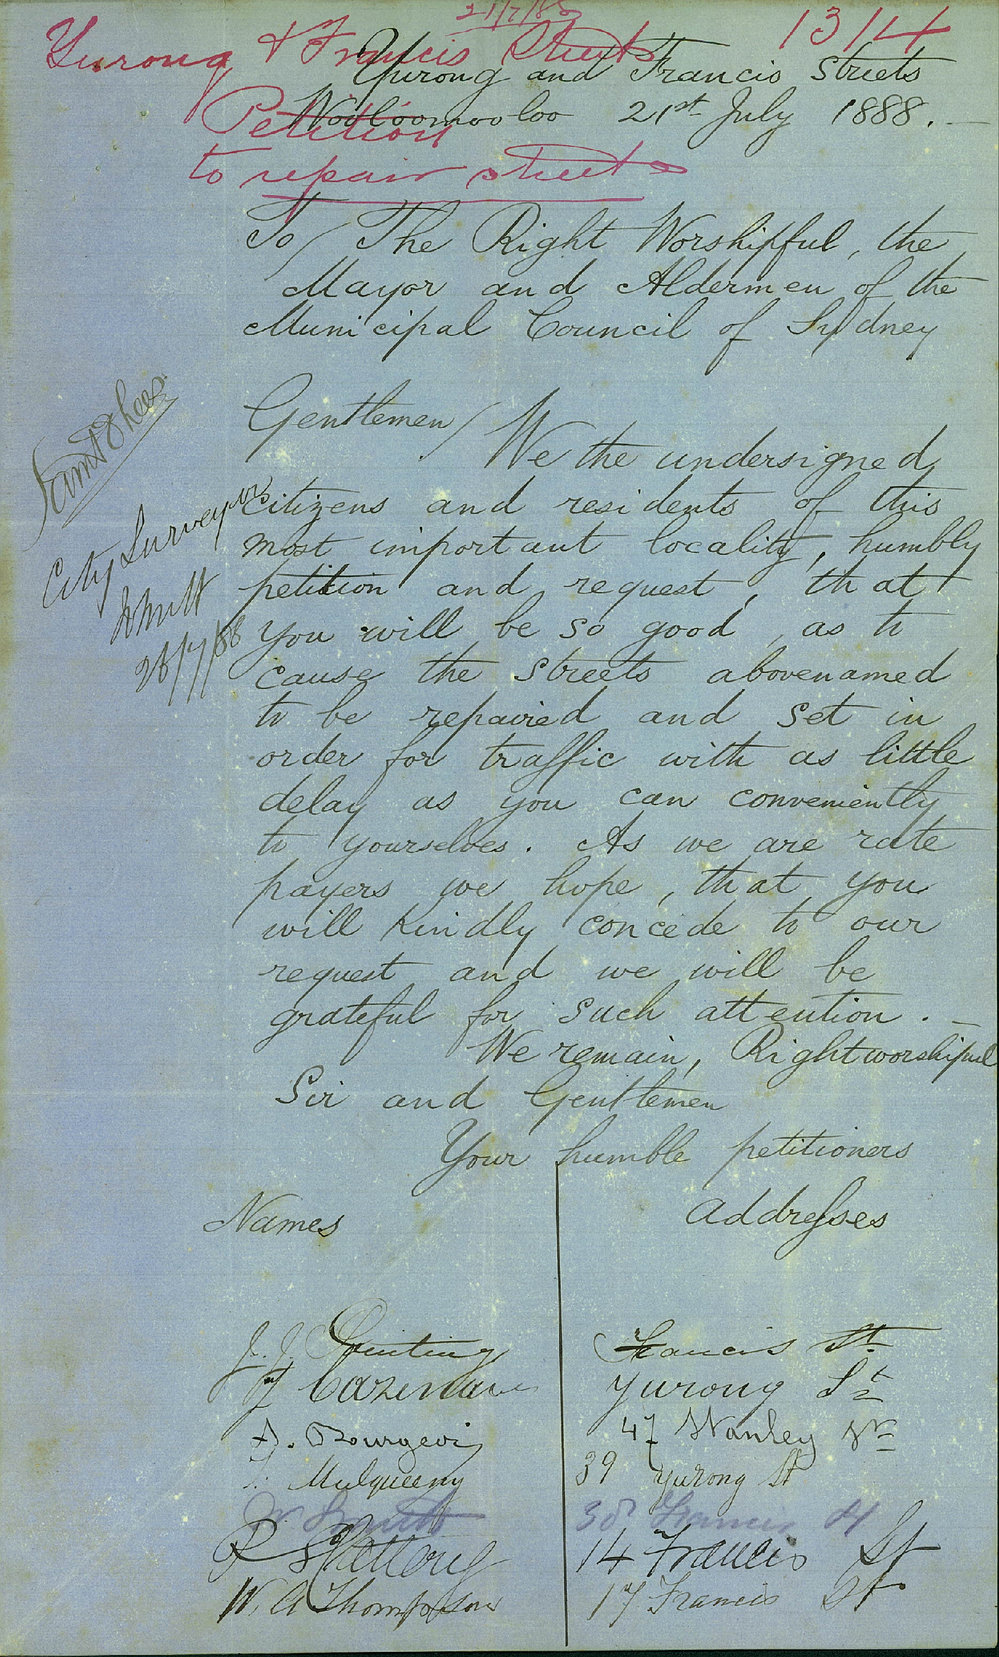 21/7/88
13/14
Yurong & Francis Streets
Petition
to repair streets
Yurong and Francis Streets
Woolloomooloo 21st July 1888.
To/ The Right Worshipful, the
Mayor and Aldermen of the
Municipal Council of Sydney
Gentlemen/
We the undersigned,
citizens and residents of this
most important locality, humbly
petition and request, that
you will be so good, as to
cause the streets abovenamed
to be repairied and set in
order for traffic with as little
delay as you can conveniently
to yourselves. As we are rate
payers we hope, that you
will kindly concede to our
request and we will be
grateful for such attention.
We remain, Rightworshipful
Sir and Gentlemen
Your humble petitioners
City Surveyor
26/7/88
Names Addresses
J. J. Francis St
J Cazeneau Yurong St
A. Bourgeois 47 Stanley St
Mulqueeny 39 Yurong St
W Smith 38 Francis St
P Slattery 14 Francis St
W. A Thompson 17 Francis St